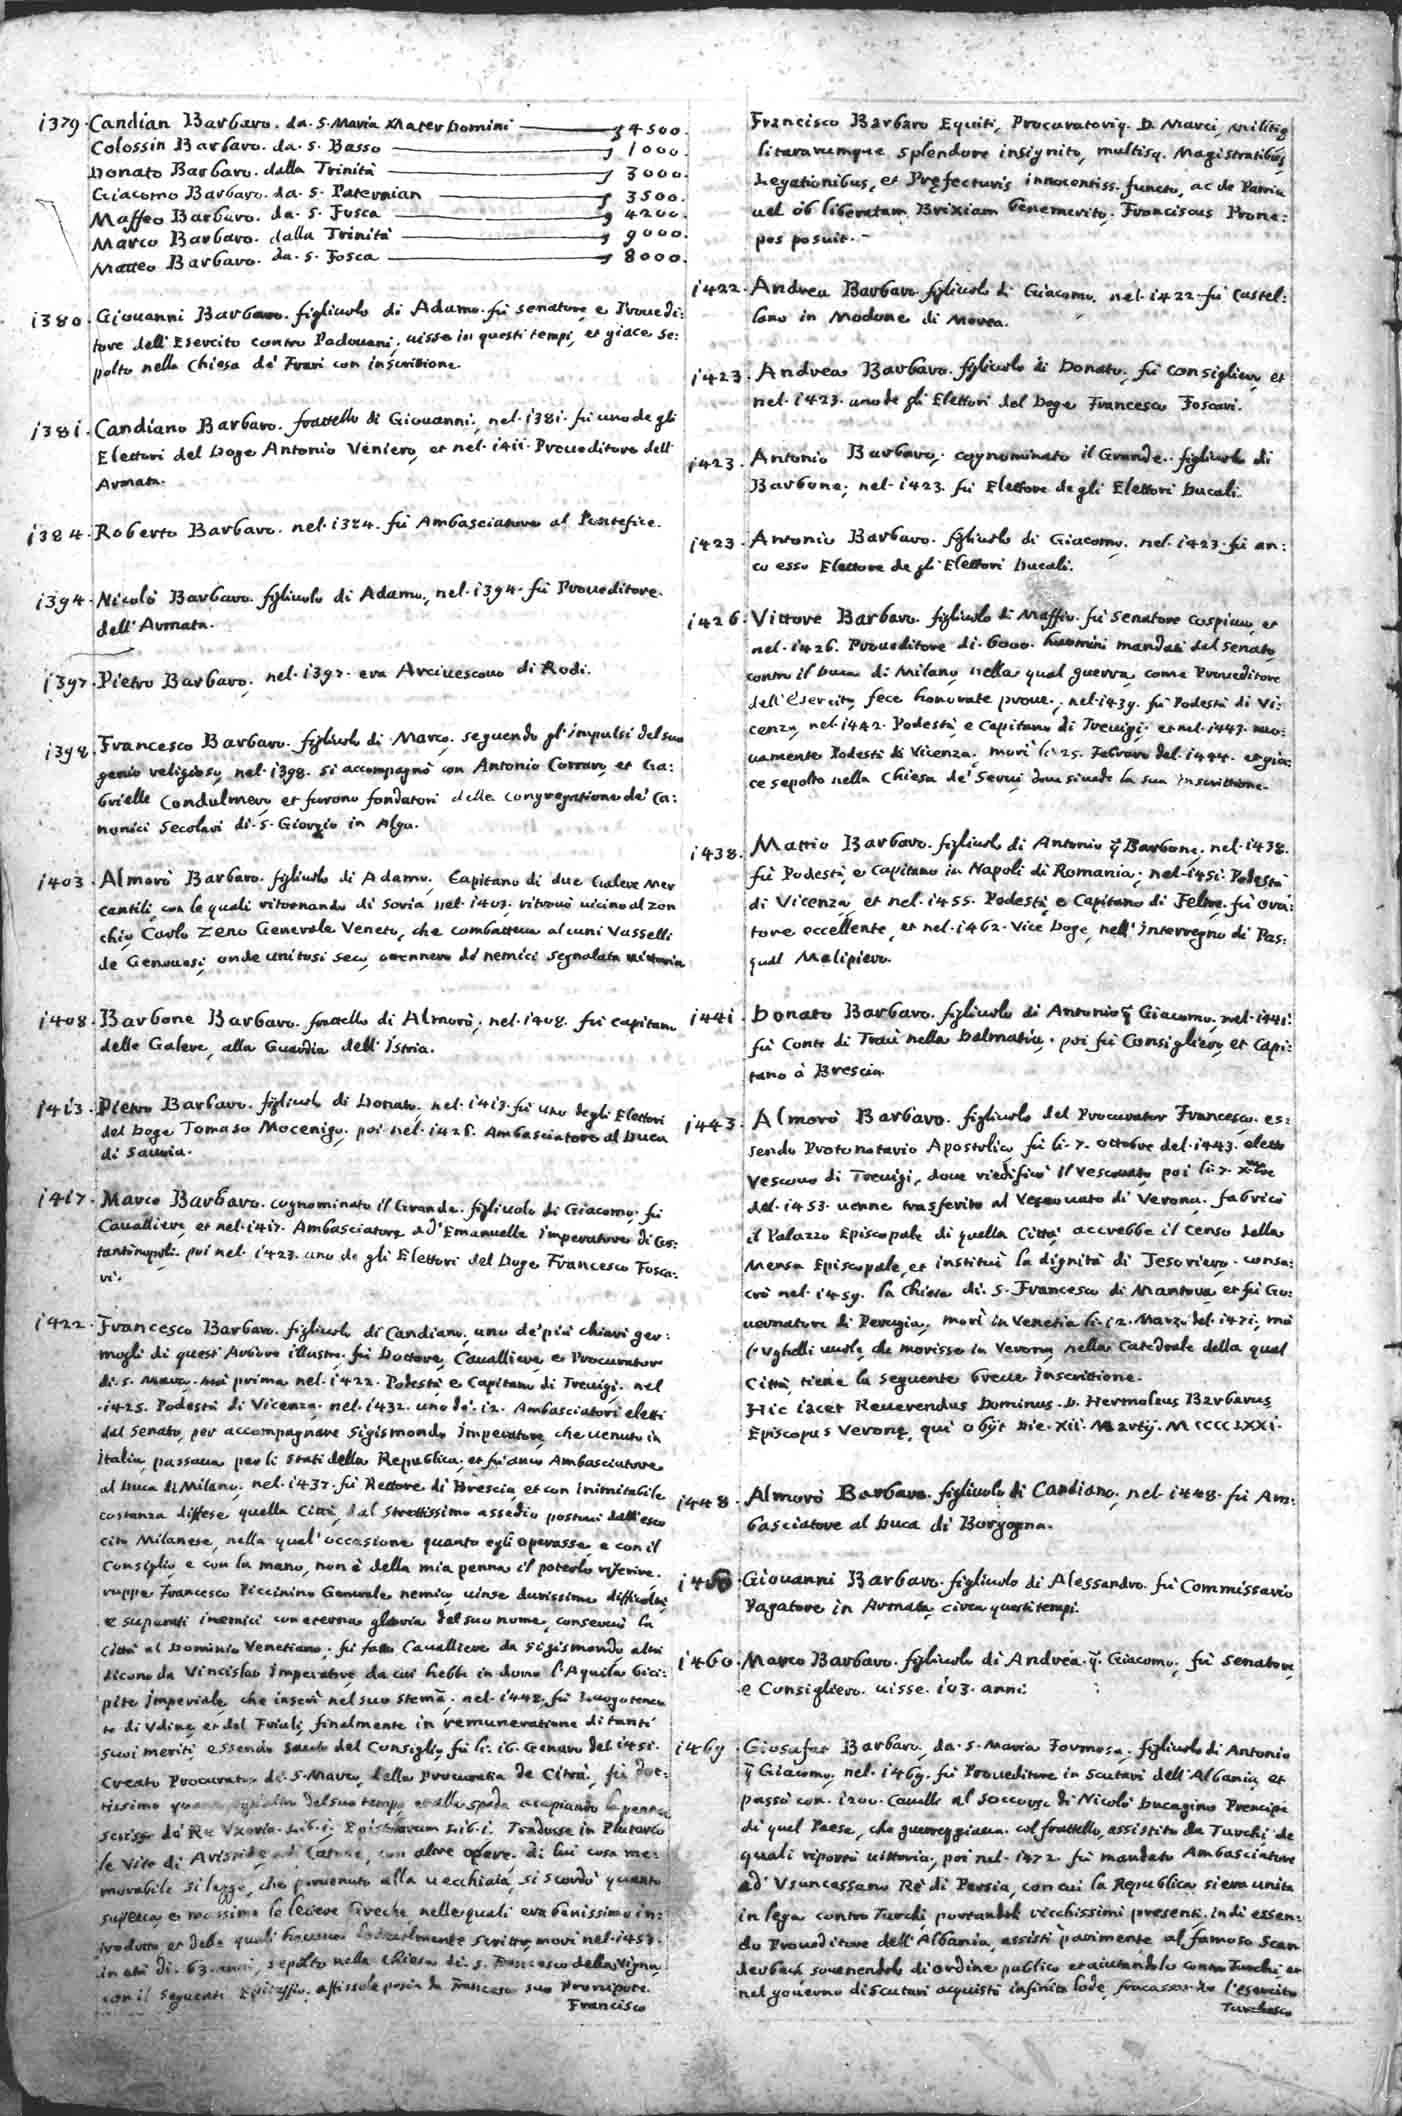 1379. Candian Barbaro. da. S. Maria Mater Domini 4500.
Colossin Barbaro. da. S. Basso 1000.
Donato Barbaro. dalla Trinità 3000.
Giacomo Barbaro. da. S. Paternian 3500.
Maffeo Barbaro. da. S. Fosca 4200.
Marco Barbaro. dalla Trinità 9000.
Matteo Barbaro. da. S. Fosca 8000.
1380. Giovanni Barbaro. figliuolo di Adamo. fù senatore, e Prouedi:
tore dell'Esercito contro Padouani, uisse in questi tempi, et giace se:
polto nella Chiesa de' Frari con inscrittione.
1381. Candiano Barbaro. frattello di Giouanni, nel. 1381. fù uno de gli
Elettori del Doge Antonio Veniero, et nel. 1411. Proueditore dell'
Armata.
1384. Roberto Barbaro. nel. 1384. fù Ambasciatore al Pontefice.
1394. Nicolò Barbaro. figliuolo di Adamo, nel. 1394. fù Proueditore.
dell'Armata.
1397. Pietro Barbaro, nel. 1397. era Arciuescouo di Rodi.
1398. Francesco Barbaro. figliuolo di Marco, seguendo gl'impulsi del suo
genio religioso, nel. 1398. si accompagnò con Antonio Corraro, et Ga:
brielle Condulmero, et furono fondatori della congregatione de' Ca:
nonici Secolari di. S. Giorgio in Alga.
1403. Almorò Barbaro. figliuolo di Adamo, Capitano di due Galere Mer
cantili, con le quali ritornando di Soria nel. 1403. ritrouò uicino al zon
chio Carlo Zeno Generale Veneto, che combatteua alcuni Vasselli
de Genouesi, onde unitosi seco, ottennero de' nemici segnalata uittoria
1408. Barbone Barbaro. frattello di Almorò, nel. 1408. fù capitano
delle Galere, alla Guardia dell'Istria.
1413. Pietro Barbaro. figliuolo di Donato, nel. 1413. fù uno degli Elettori
del Doge Tomaso Mocenigo. poi nel. 1426. Ambasciatore al Duca
di Sauoia.
1417. Marco Barbaro. cognominato il Grande. figliuolo di Giacomo, fù
Cauallier, et nel. 1417. Ambasciatore ad'Emanuelle Imperatore di Cos:
tantinopoli. poi nel. 1423. uno de gli Elettori del Doge Francesco Fosca:
ri.
1422. Francesco Barbaro. figliuolo di Candiano, uno de' più chiari ger:
mogli di quest'Arbore illustre. fù Dottore, Caualliere, e Procurator
di. S. Marco. mà prima nel. 1422. Podestà e Capitano di Treuigi, nel
.1425. Podestà di Vicenza. nel. 1432. uno de'. 12. Ambasciatori eletti
dal Senato, per accompagnare Sigismondo Imperatore, che uenuto in
Italia, passaua per li stati della Republica, et fù anco Ambasciatore
al Duca di Milano, nel. 1437. fù Rettore di Brescia, et con inimitabile
costanza diffese quella Città, dal strettissimo assedio postoui dall'eser
cito Milanese, nella qual'occasione quanto egli operasse, e con il
Consiglio, e con la mano, non è della mia penna il poterlo riferire.
ruppe Francesco Piccinino Generale nemico, uinse durissime difficoltà,
e superati i nemici con eterna gloria del suo nome, conseruò la
Città al Dominio Venetiano, fù fatto Caualliere da Sigismondo, altri
dicono da Vincislao Imperatore, da cui hebbe in dono l'Aquila bici:
pite Imperiale, che inserì nel suo stema, nel. 1448. fù Luogotenen
te di Vdine, et del Friuli, finalmente in remuneratione di tanti
suoi meriti essendo sauio del Consiglio, fù li. 16. Genaro del. 1451.
Creato Procurator di. S. Marco, della Procuratia de Citrà, fù dot:
tissimo del suo tempo, et alla spada acopiando la penna
scrisse de' Re Vxoria. Lib. 1. Epistolarum Lib. 1. Tradusse in Plutarco
le Vite di Aristide, e di Catone, con altre opere. di lui cosa me:
morabile si legge, che peruenuto alla uecchiaia, si scordò quanto
sapeua, e massime le lettere Greche, nelle quali era benissimo in:
trodotto, et delle quali haueua scritto, morì nel. 1454.
in età di. 63. anni, sepolto nella Chiesa di. S. Francesco della Vigna,
con il seguente Epitaffio, affissole poscia da Francesco suo Pronipote.
Francisco
Francisco Barbaro Equiti, Procuratoriq. D. Marci, militię
literarumque splendore insignito, multisq. Magistratibus,
Legationibus, et Pręfecturis innocentiss. functo, ac de Patria
uel ob liberatam Brixiam benemerito. Franciscus Prone:
pos posuit.
1422. Andrea Barbaro. figliuolo di Giacomo, nel. 1422. fù Castel:
lano in Modone di Morea.
1423. Andrea Barbaro. figliuolo di Donato, fù consigliero, et
nel. 1423. uno de gli Elettori del Doge Francesco Foscari.
1423. Antonio Barbaro, cognominato il Grande. figliuolo di
Barbone, nel. 1423. fù Elettore de gli Elettori Ducali.
1423. Antonio Barbaro. figliuolo di Giacomo, nel. 1423. fù an:
co esso Elettore de gli Elettori Ducali.
1426. Vittore Barbaro. figliuolo di Maffio. fù senatore cospicuo, et
nel. 1426. Proueditore di. 6000. huomini mandati dal Senato,
contro il Duca di Milano, nella qual guerra, come Proueditore
dell'Esercito, fece honorate proue, nel. 1439. fù Podestà di Vi:
cenza, nel. 1442. Podestà, e Capitano di Treuigi, et nel. 1443. nuo:
uamente Podestà di Vicenza, morì li. 25. Febraro del. 1444. et gia:
ce sepolto nella Chiesa de' Serui, doue si uede la sua inscrittione.
1438. Mattio Barbaro. figliuolo di Antonio q̃ Barbone, nel. 1438.
fù Podestà, e Capitano in Napoli di Romania, nel. 1451. Podestà
di Vicenza, et nel. 1455. Podestà, e Capitano di Feltre. fù ora:
tore eccellente, et nel. 1462. Vice Doge, nell'interregno di Pas:
qual Malipiero.
1441. Donato Barbaro. figliuolo di Antonio q̃ Giacomo, nel. 1441.
fù Conte di Traù nella Dalmatia, poi fù Consigliero, et Capi:
tano à Brescia.
1443. Almorò Barbaro. figliuolo del Procurator Francesco. es:
sendo Protonotario Apostolico, fù li. 7. ottobre del. 1443. eletto
Vescouo di Treuigi, doue riedificò il Vescouato, poi li. 7. Xmbre
del. 1453. uenne trasferito al Vescouato di Verona, fabricò
il Palazzo Episcopale di quella Città, accrebbe il Censo della
Mensa Episcopale, et instituì la dignità di Tesoriero. consa:
crò nel. 1459. la Chiesa di. S. Francesco di Mantoua, et fù Go:
uernatore di Perugia, morì in Venetia li. 12. Marzo del. 1471, mà
l'Vghelli uuole, che morisse in Verona, nella Catedrale della qual
Città, tiene la seguente breue Inscrittione.
Hic iacet Reuerendus Dominus. D. Hermolaus Barbarus
Episcopus Veronę, qui obijt Die. XII. Martij. MCCCCLXXI.
1448. Almorò Barbaro. figliuolo di Candiano, nel. 1448. fù Am:
basciatore al Duca di Borgogna.
Giouanni Barbaro. figliuolo di Alessandro. fù Commissario
Pagatore in Armata, circa questi tempi.
1460. Marco Barbaro. figliuolo di Andrea. q̃. Giacomo, fù senatore,
e Consigliero. uisse. 103. anni.
1469. Giosafat Barbaro, da. S. Maria Formosa. figliuolo di Antonio
q̃ Giacomo, nel. 1469. fù Proueditore in Scutari dell'Albania, et
passò con. 1200. Caualli al soccorso di Nicolò Ducagino Prencipe
di quel Paese, che guerreggiaua. col frattello, assistito da Turchi, de
quali riportò uittoria, poi nel. 1472. fù mandato Ambasciatore
ad'Vsuncassano Rè di Persia, con cui la Republica si era unita
in lega contro Turchi, portandoli ricchissimi presenti. indi essen:
do Proueditore dell'Albania, assistì parimente, al famoso Scan
derbech, souenendolo di ordine publico, et aiutandolo contro Turchi, et
nel gouerno di Scutari acquistò infinita lode, fracassando l'esercito
Turchesco